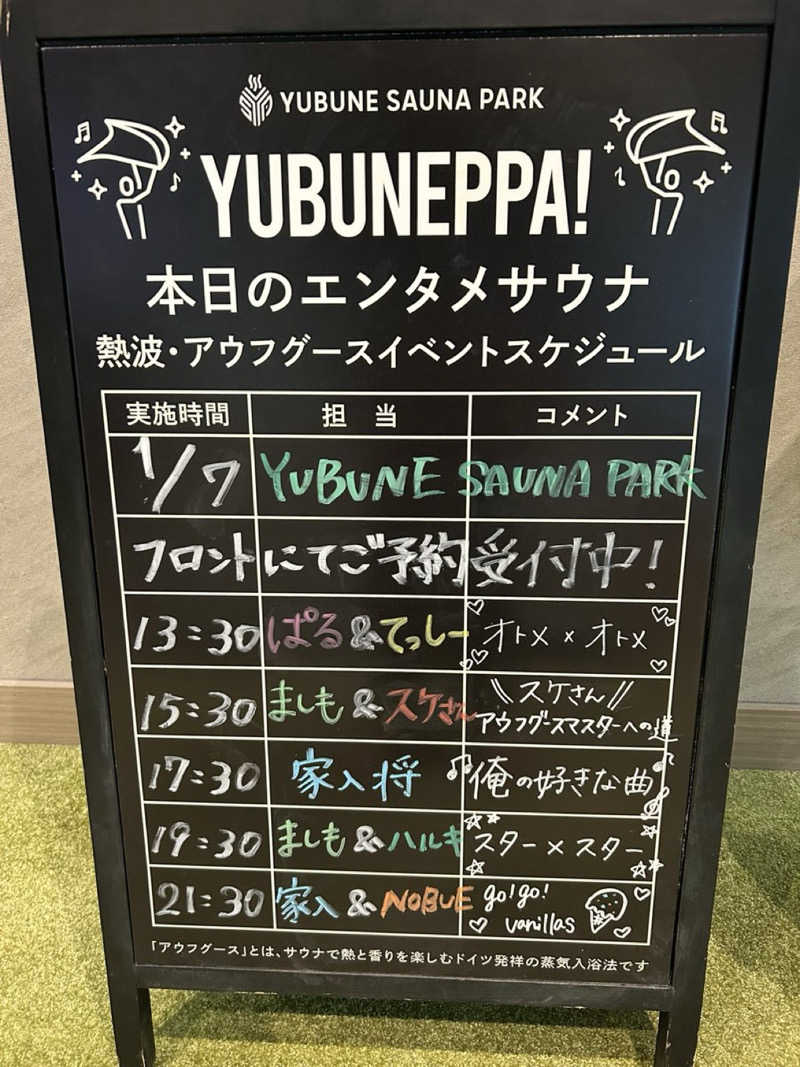 YUBUNE SAUNA PARK
YUBUNEPPA!
本日のエンタメサウナ
熱波・アウフグースイベントスケジュール
実施時間 担当 コメント
1/7 YUBUNE SAUNA PARK
フロントにてご予約受付中!
13:30 ぱる&てっしー オトメ×オトメ
15:30 ましも&スケさん \\スケさん// アウフグースマスターへの道
17:30 家入将 俺の好きな曲
19:30 ましも&ハルキ スター×スター
21:30 家入&NOBUE go!go! vanillas
「アウフグース」とは、サウナで熱と香りを楽しむドイツ発祥の蒸気入浴法です